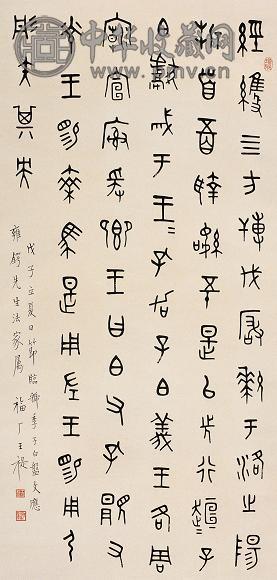 中华收藏网
經維四方搏伐厰𤞤于洛之陽
折首五百執訊五十是以先行趄=子
白獻馘于王=孔加子白義王各周
廟宣榭爰鄉王曰白父孔顯又
光王賜乘馬是用左王賜用弓
彤矢其央
戊子立夏日節臨虢季子白盤文應
雍鍔先生法家屬 福厂王禔